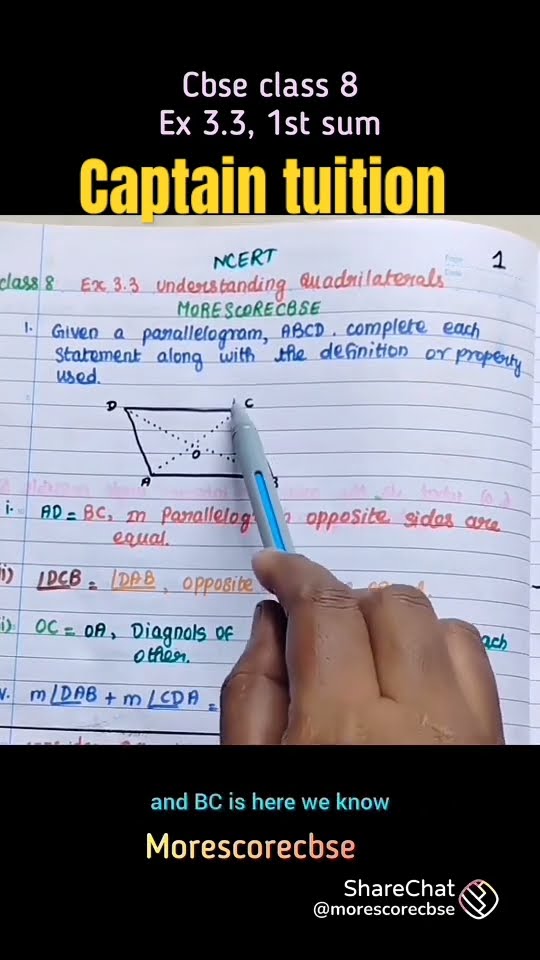 Cbse class 8
Ex 3.3, 1st sum
Captain tuition
NCERT
Page
Date
1
class 8 Ex 3.3 understanding Quadrilaterals
MORESCORECBSE
1. Given a parallelogram, ABCD. complete each
Statement along with the definition or property
used.
D C
O
A B
i. AD = BC, in parallelog opposite sides are
equal.
ii) ∠DCB = ∠DAB, opposite
OC = OA, Diagnols of each
other.
m∠DAB + m∠CDA =
and BC is here we know
Morescorecbse
ShareChat
@morescorecbse